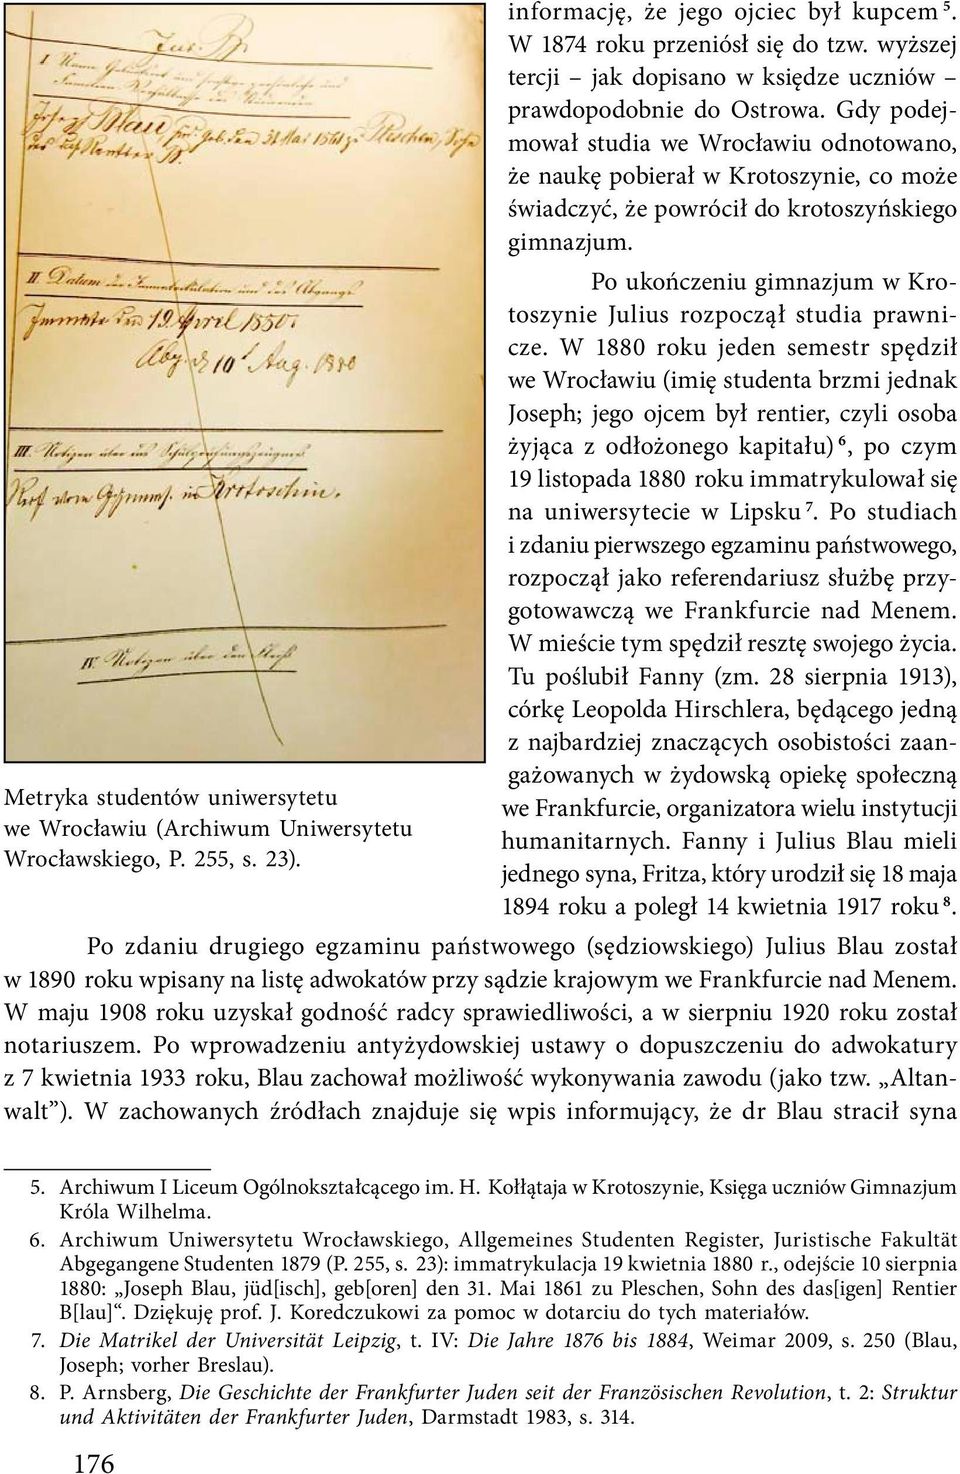 Jur. B.
I. Name, Geburtsort und sonstige persönliche und
Familien Verhältnisse des Studenten
Joseph Blau jüd. geb. den 31. Mai 1861 zu Pleschen, Sohn
des das. Rentier B.
II. Datum der Immatrikulation und des Abgangs
Immatr. den 19. April 1880.
Abg. d. 10t Aug. 1880
III. Notizen über das Schulprüfungszeugniss
Reif vom Gymnas. in Krotoschin.
IV. Notizen über den Fleiß
Metryka studentów uniwersytetu
we Wrocławiu (Archiwum Uniwersytetu
Wrocławskiego, P. 255, s. 23).
informację, że jego ojciec był kupcem 5.
W 1874 roku przeniósł się do tzw. wyższej
tercji – jak dopisano w księdze uczniów –
prawdopodobnie do Ostrowa. Gdy podej-
mował studia we Wrocławiu odnotowano,
że naukę pobierał w Krotoszynie, co może
świadczyć, że powrócił do krotoszyńskiego
gimnazjum.
Po ukończeniu gimnazjum w Kro-
toszynie Julius rozpoczął studia prawni-
cze. W 1880 roku jeden semestr spędził
we Wrocławiu (imię studenta brzmi jednak
Joseph; jego ojcem był rentier, czyli osoba
żyjąca z odłożonego kapitału) 6, po czym
19 listopada 1880 roku immatrykulował się
na uniwersytecie w Lipsku 7. Po studiach
i zdaniu pierwszego egzaminu państwowego,
rozpoczął jako referendariusz służbę przy-
gotowawczą we Frankfurcie nad Menem.
W mieście tym spędził resztę swojego życia.
Tu poślubił Fanny (zm. 28 sierpnia 1913),
córkę Leopolda Hirschlera, będącego jedną
z najbardziej znaczących osobistości zaan-
gażowanych w żydowską opiekę społeczną
we Frankfurcie, organizatora wielu instytucji
humanitarnych. Fanny i Julius Blau mieli
jednego syna, Fritza, który urodził się 18 maja
1894 roku a poległ 14 kwietnia 1917 roku 8.
Po zdaniu drugiego egzaminu państwowego (sędziowskiego) Julius Blau został
w 1890 roku wpisany na listę adwokatów przy sądzie krajowym we Frankfurcie nad Menem.
W maju 1908 roku uzyskał godność radcy sprawiedliwości, a w sierpniu 1920 roku został
notariuszem. Po wprowadzeniu antyżydowskiej ustawy o dopuszczeniu do adwokatury
z 7 kwietnia 1933 roku, Blau zachował możliwość wykonywania zawodu (jako tzw. „Altan-
walt”). W zachowanych źródłach znajduje się wpis informujący, że dr Blau stracił syna
5. Archiwum I Liceum Ogólnokształcącego im. H. Kołłątaja w Krotoszynie, Księga uczniów Gimnazjum
Króla Wilhelma.
6. Archiwum Uniwersytetu Wrocławskiego, Allgemeines Studenten Register, Juristische Fakultät
Abgegangene Studenten 1879 (P. 255, s. 23): immatrykulacja 19 kwietnia 1880 r., odejście 10 sierpnia
1880: „Joseph Blau, jüd[isch], geb[oren] den 31. Mai 1861 zu Pleschen, Sohn des das[igen] Rentier
B[lau]“. Dziękuję prof. J. Koredczukowi za pomoc w dotarciu do tych materiałów.
7. Die Matrikel der Universität Leipzig, t. IV: Die Jahre 1876 bis 1884, Weimar 2009, s. 250 (Blau,
Joseph; vorher Breslau).
8. P. Arnsberg, Die Geschichte der Frankfurter Juden seit der Französischen Revolution, t. 2: Struktur
und Aktivitäten der Frankfurter Juden, Darmstadt 1983, s. 314.
176